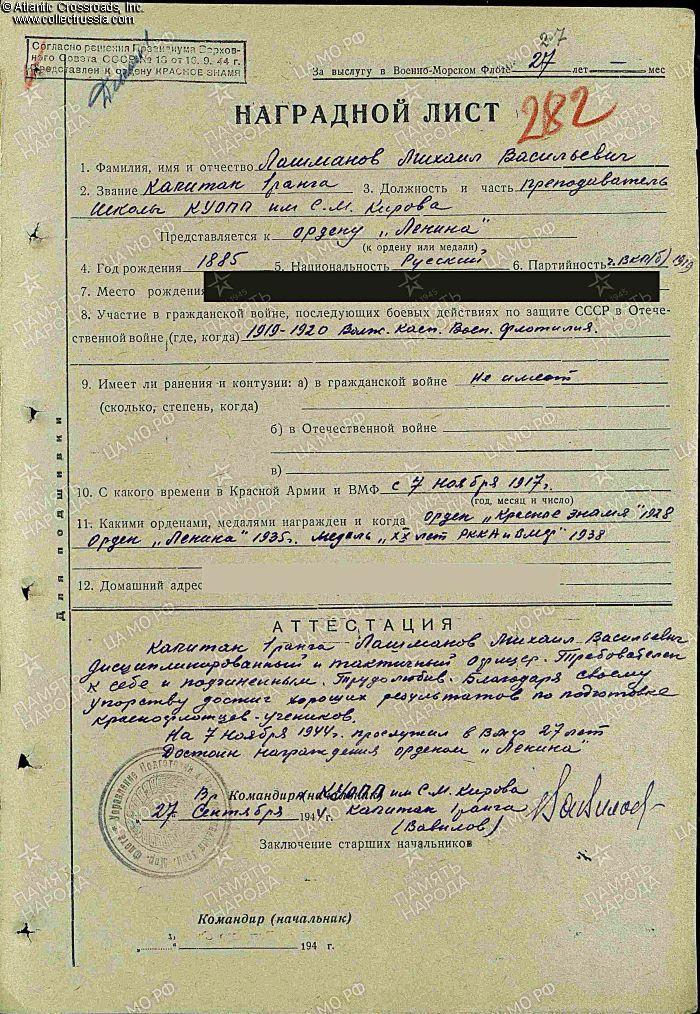 © Atlantic Crossroads, Inc.
www.collectrussia.com
Согласно решения Президиума Верхов-
ного Совета СССР № 16 от 16.9.44 г.
Представлен к ордену КРАСНОЕ ЗНАМЯ
27
За выслугу в Военно-Морском Флоте 27 лет — мес
НАГРАДНОЙ ЛИСТ 282
1. Фамилия, имя и отчество Лашманов Михаил Васильевич
2. Звание Капитан 1 ранга 3. Должность и часть преподаватель
Школы КУОПП им С.М. Кирова
Представляется к ордену „Ленина"
(к ордену или медали)
4. Год рождения 1885 5. Национальность Русский 6. Партийность ч. ВКП(б) 1919
7. Место рождения
8. Участие в гражданской войне, последующих боевых действиях по защите СССР в Отече-
ственной войне (где, когда) 1919-1920 Волж. Касп. Воен. флотилия.
9. Имеет ли ранения и контузии: а) в гражданской войне Не имеет
(сколько, степень, когда)
б) в Отечественной войне
в)
10. С какого времени в Красной Армии и ВМФ с 7 ноября 1917 г.
(год, месяц и число)
11. Какими орденами, медалями награжден и когда Орден „Красное знамя" 1928
Орден „Ленина" 1935 г. медаль „XX лет РККА и ВМФ" 1938
12. Домашний адрес
Для подшивки
АТТЕСТАЦИЯ
Капитан 1 ранга Лашманов Михаил Васильевич
дисциплинированный и тактичный офицер. Требователен
к себе и подчиненным. Трудолюбив. Благодаря своему
упорству достиг хороших результатов по подготовке
краснофлотцев-учеников.
На 7 Ноября 1944 г. прослужил в ВМФ 27 лет
Достоин награждения орденом „Ленина"
Вр Командира (начальник) КУОПП им С.М. Кирова
27 Сентября 1944 г. Капитан 1 ранга
(Вавилов)
Заключение старших начальников
Командир (начальник)
194 г.
ПАМЯТЬ НАРОДА
ЦА МО.РФ